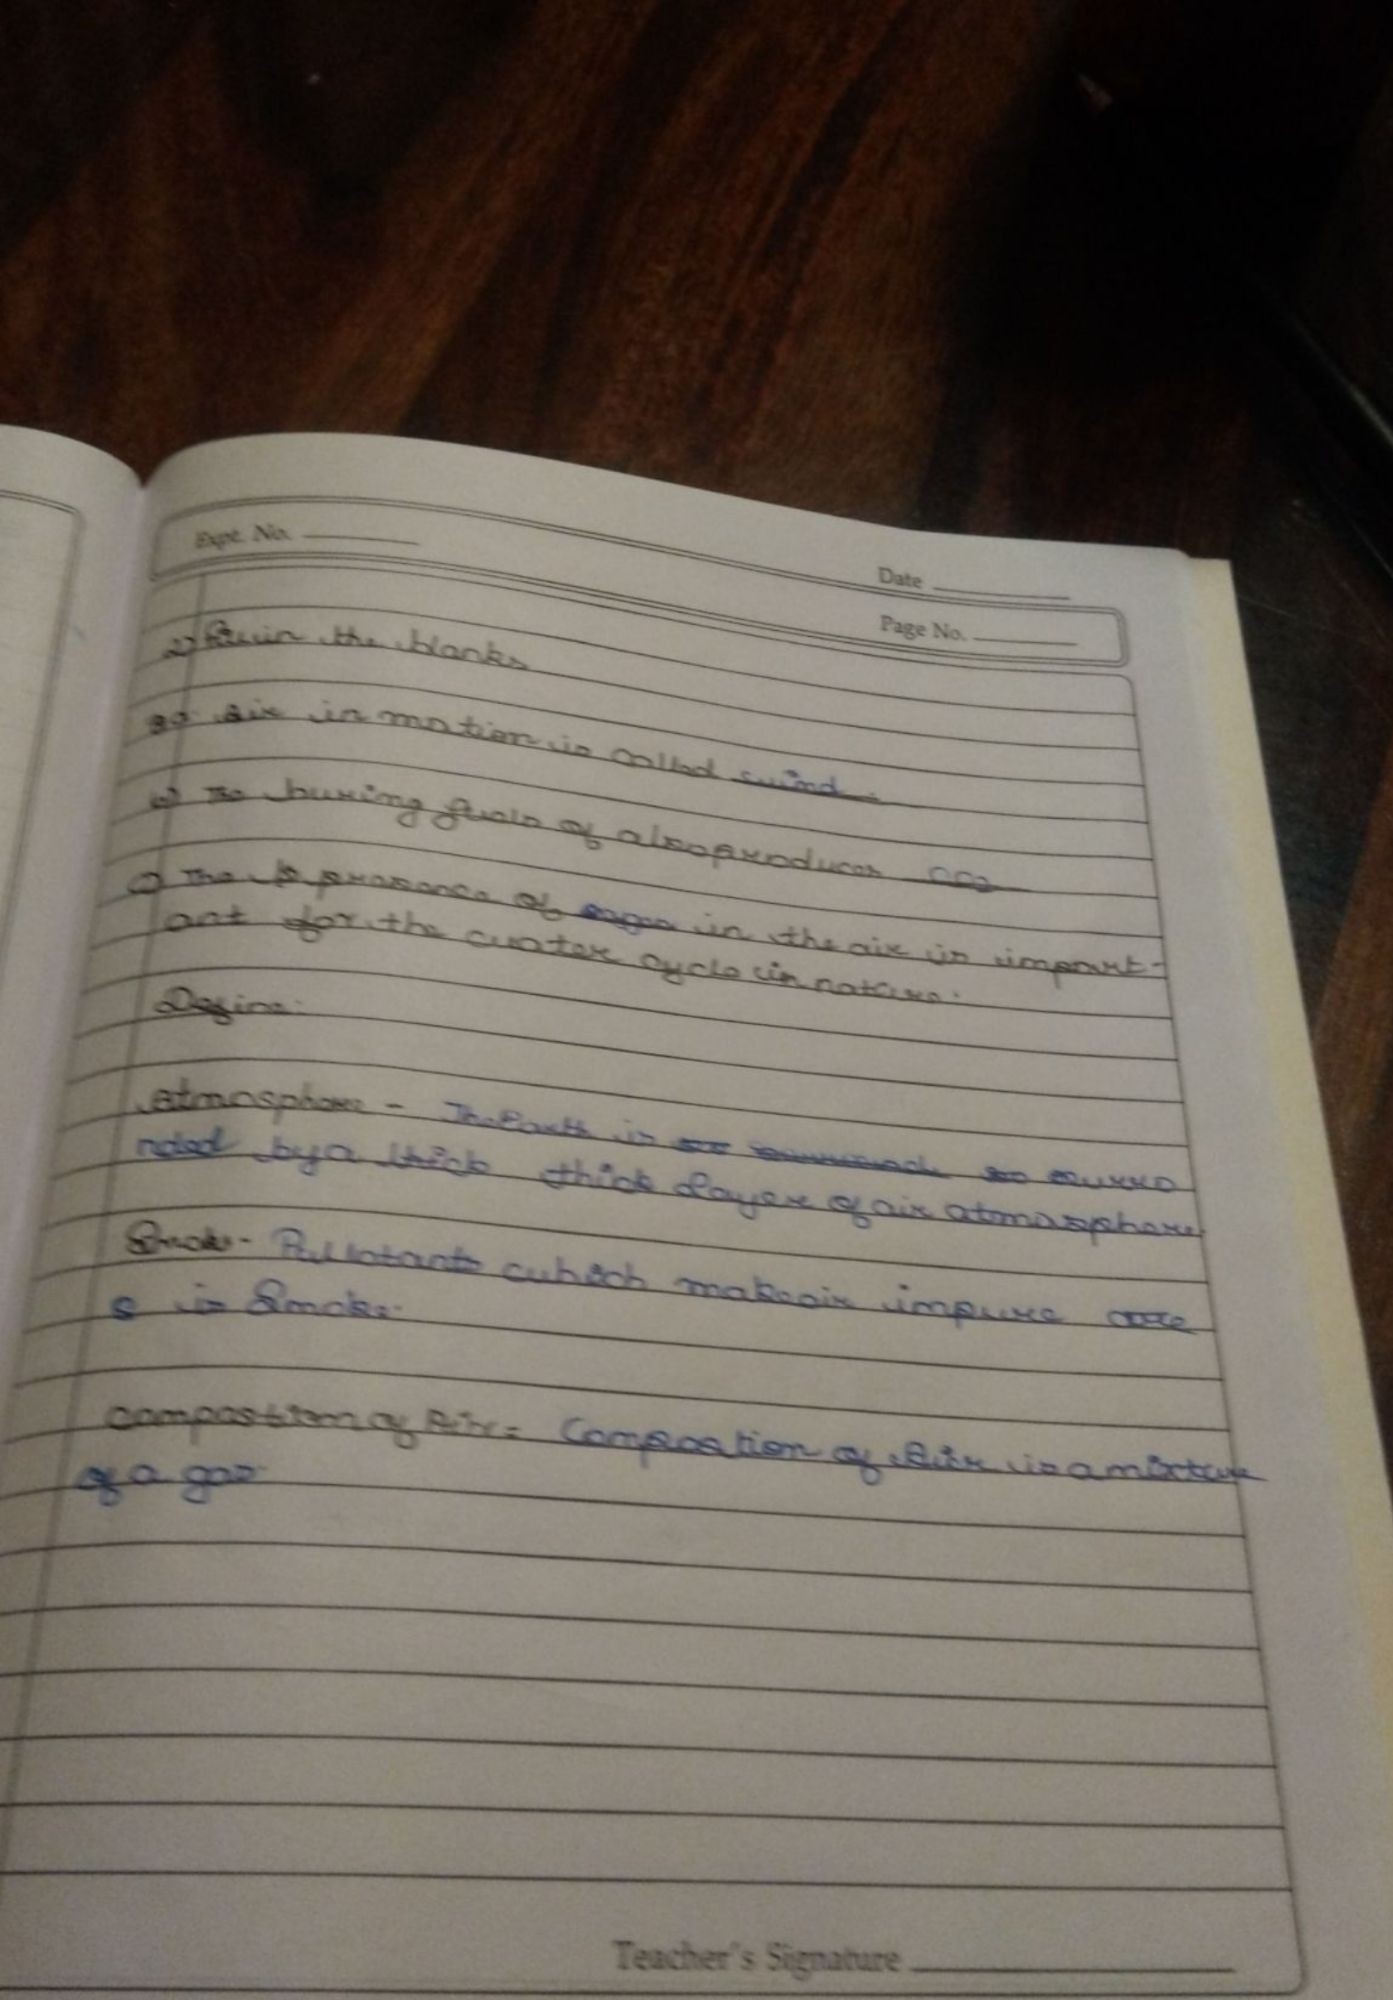 Expt. No.
Date
Page No.
2) in the blanks
a) Air in motion is called wind.
b) The burning fuels of also produces CO2
c) The presence of in the air is import-
ant for the water cycle in nature.
Define:
Atmosphere - The Earth is surro
nded by a thick thick layer of air atmosphere.
Smoke - Pollutants which makes air impure
s is Smoke.
Composition of Air = Composition of Air is a mixture
of a gas.
Teacher's Signature